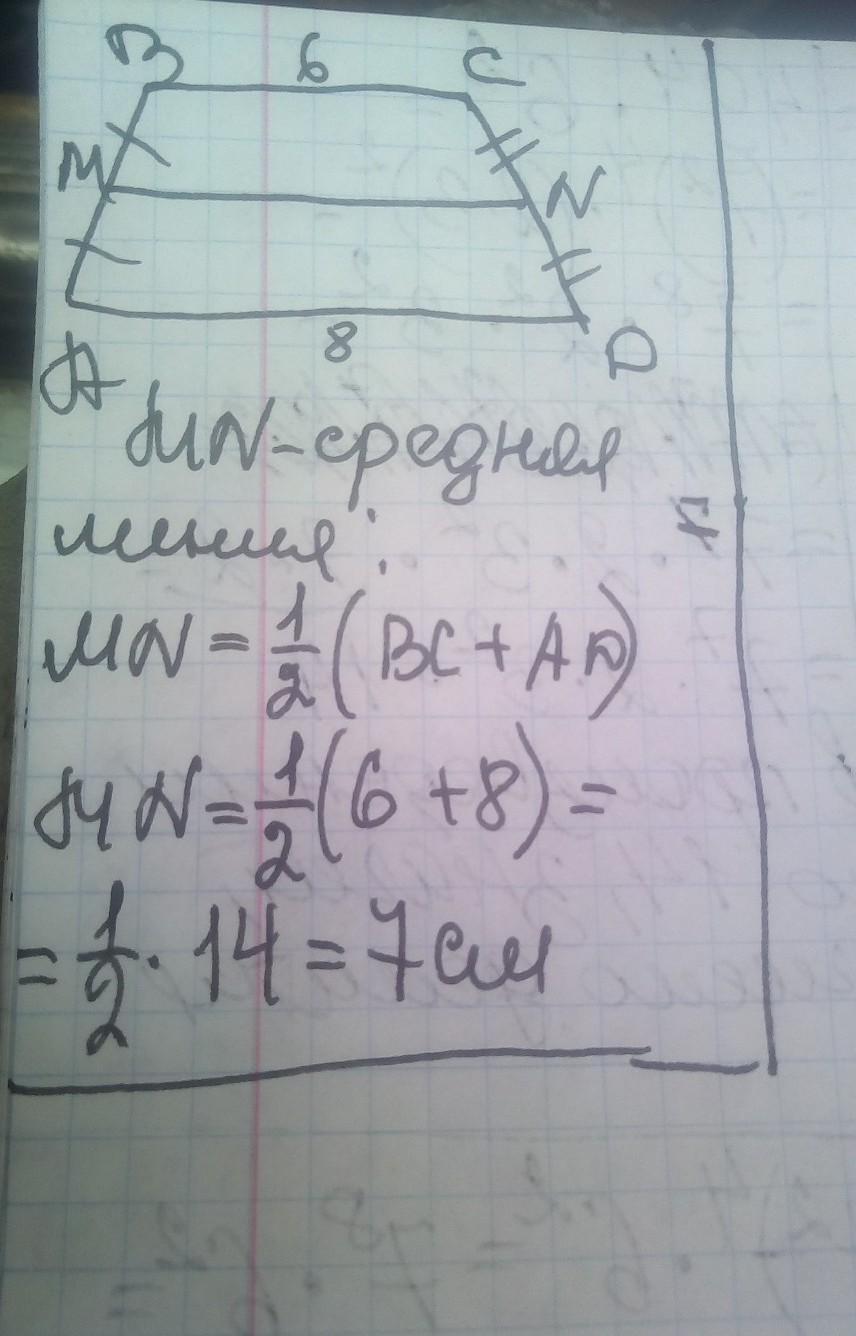 B 6 C
M N
A 8 D
MN-средняя
линия:
MN = 1/2 (BC + AD)
MN = 1/2 (6 + 8) =
= 1/2 · 14 = 7 см